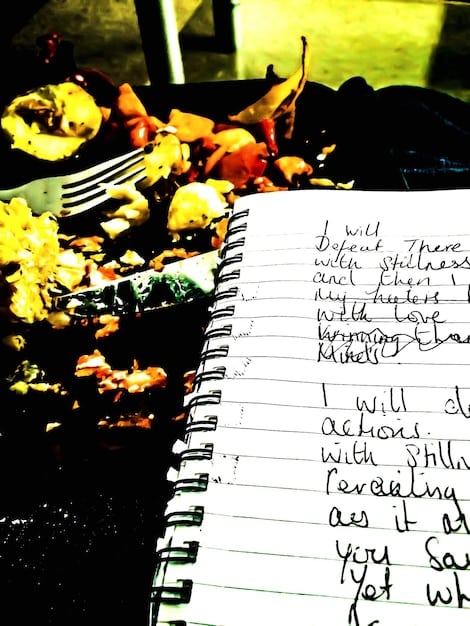 I will
Defeat There
with stillness
and then I
my haters
with love
Winning than
Minds
I will de
actions.
with stilln
revealing
as it at
you sa
Yet wh